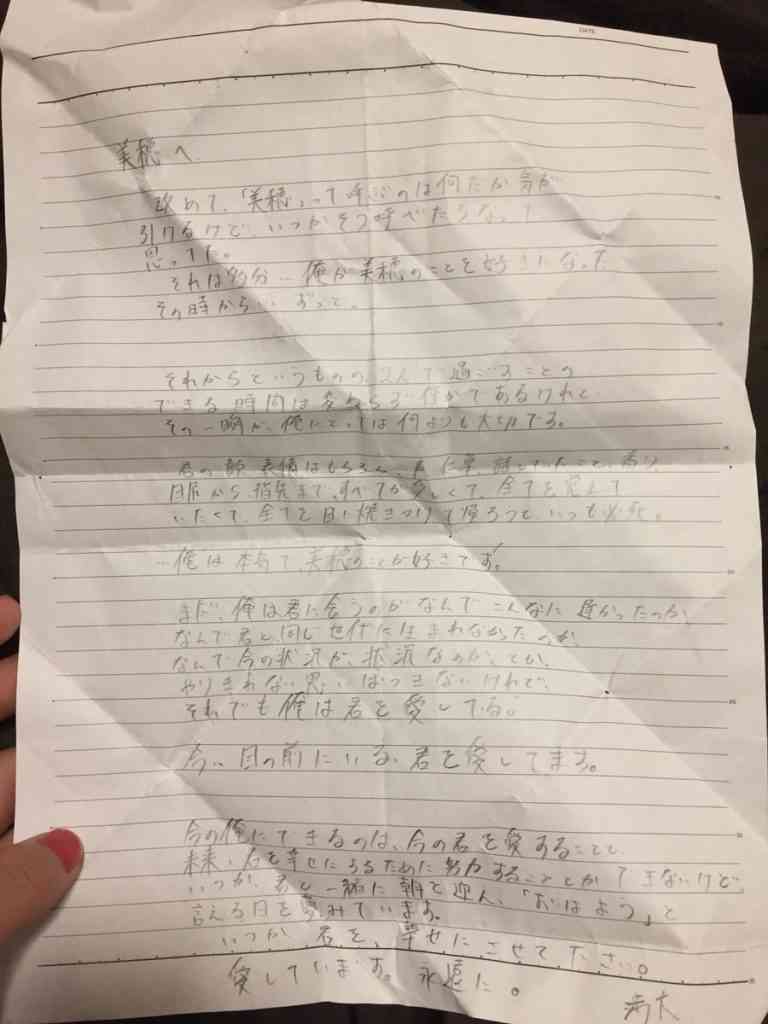 DATE
美穂へ
改めて、「美穂」って呼ぶのは何だか気が
引けるけど、いつかそう呼べたらなって
思ってた。
それは多分…俺が美穂のことを好きになった
その時から…ずっと。
それからというものの、2人で過ごすことの
できる時間は多からず存かであるけれど
その一瞬が、俺にとっては何よりも大切です。
君の顔、表情はもちろん、
目尻から指先まで、すべてが愛しくて、全てを覚えて
いたくて、全てを目に焼きつけて帰ろうと、いつも必死。
…俺は本気で、美穂のことが好きです。
まだ、俺は君に会うのがなんでこんなに遅かったのか、
なんで君と同じ世代に生まれなかったのか、
なんで今の状況が、状況なのか、とか、
やりきれない思いはつきないけれど、
それでも俺は君を愛してる。
今、目の前にいる、君を愛してます。
今の俺にできるのは、今の君を愛することと、
未来、君を幸せにするために努力することしかできないけど、
いつか、君と一緒に朝を迎え、「おはよう」と
言える日を夢みています。
いつか、君を、幸せにさせてください。
愛しています。永遠に。